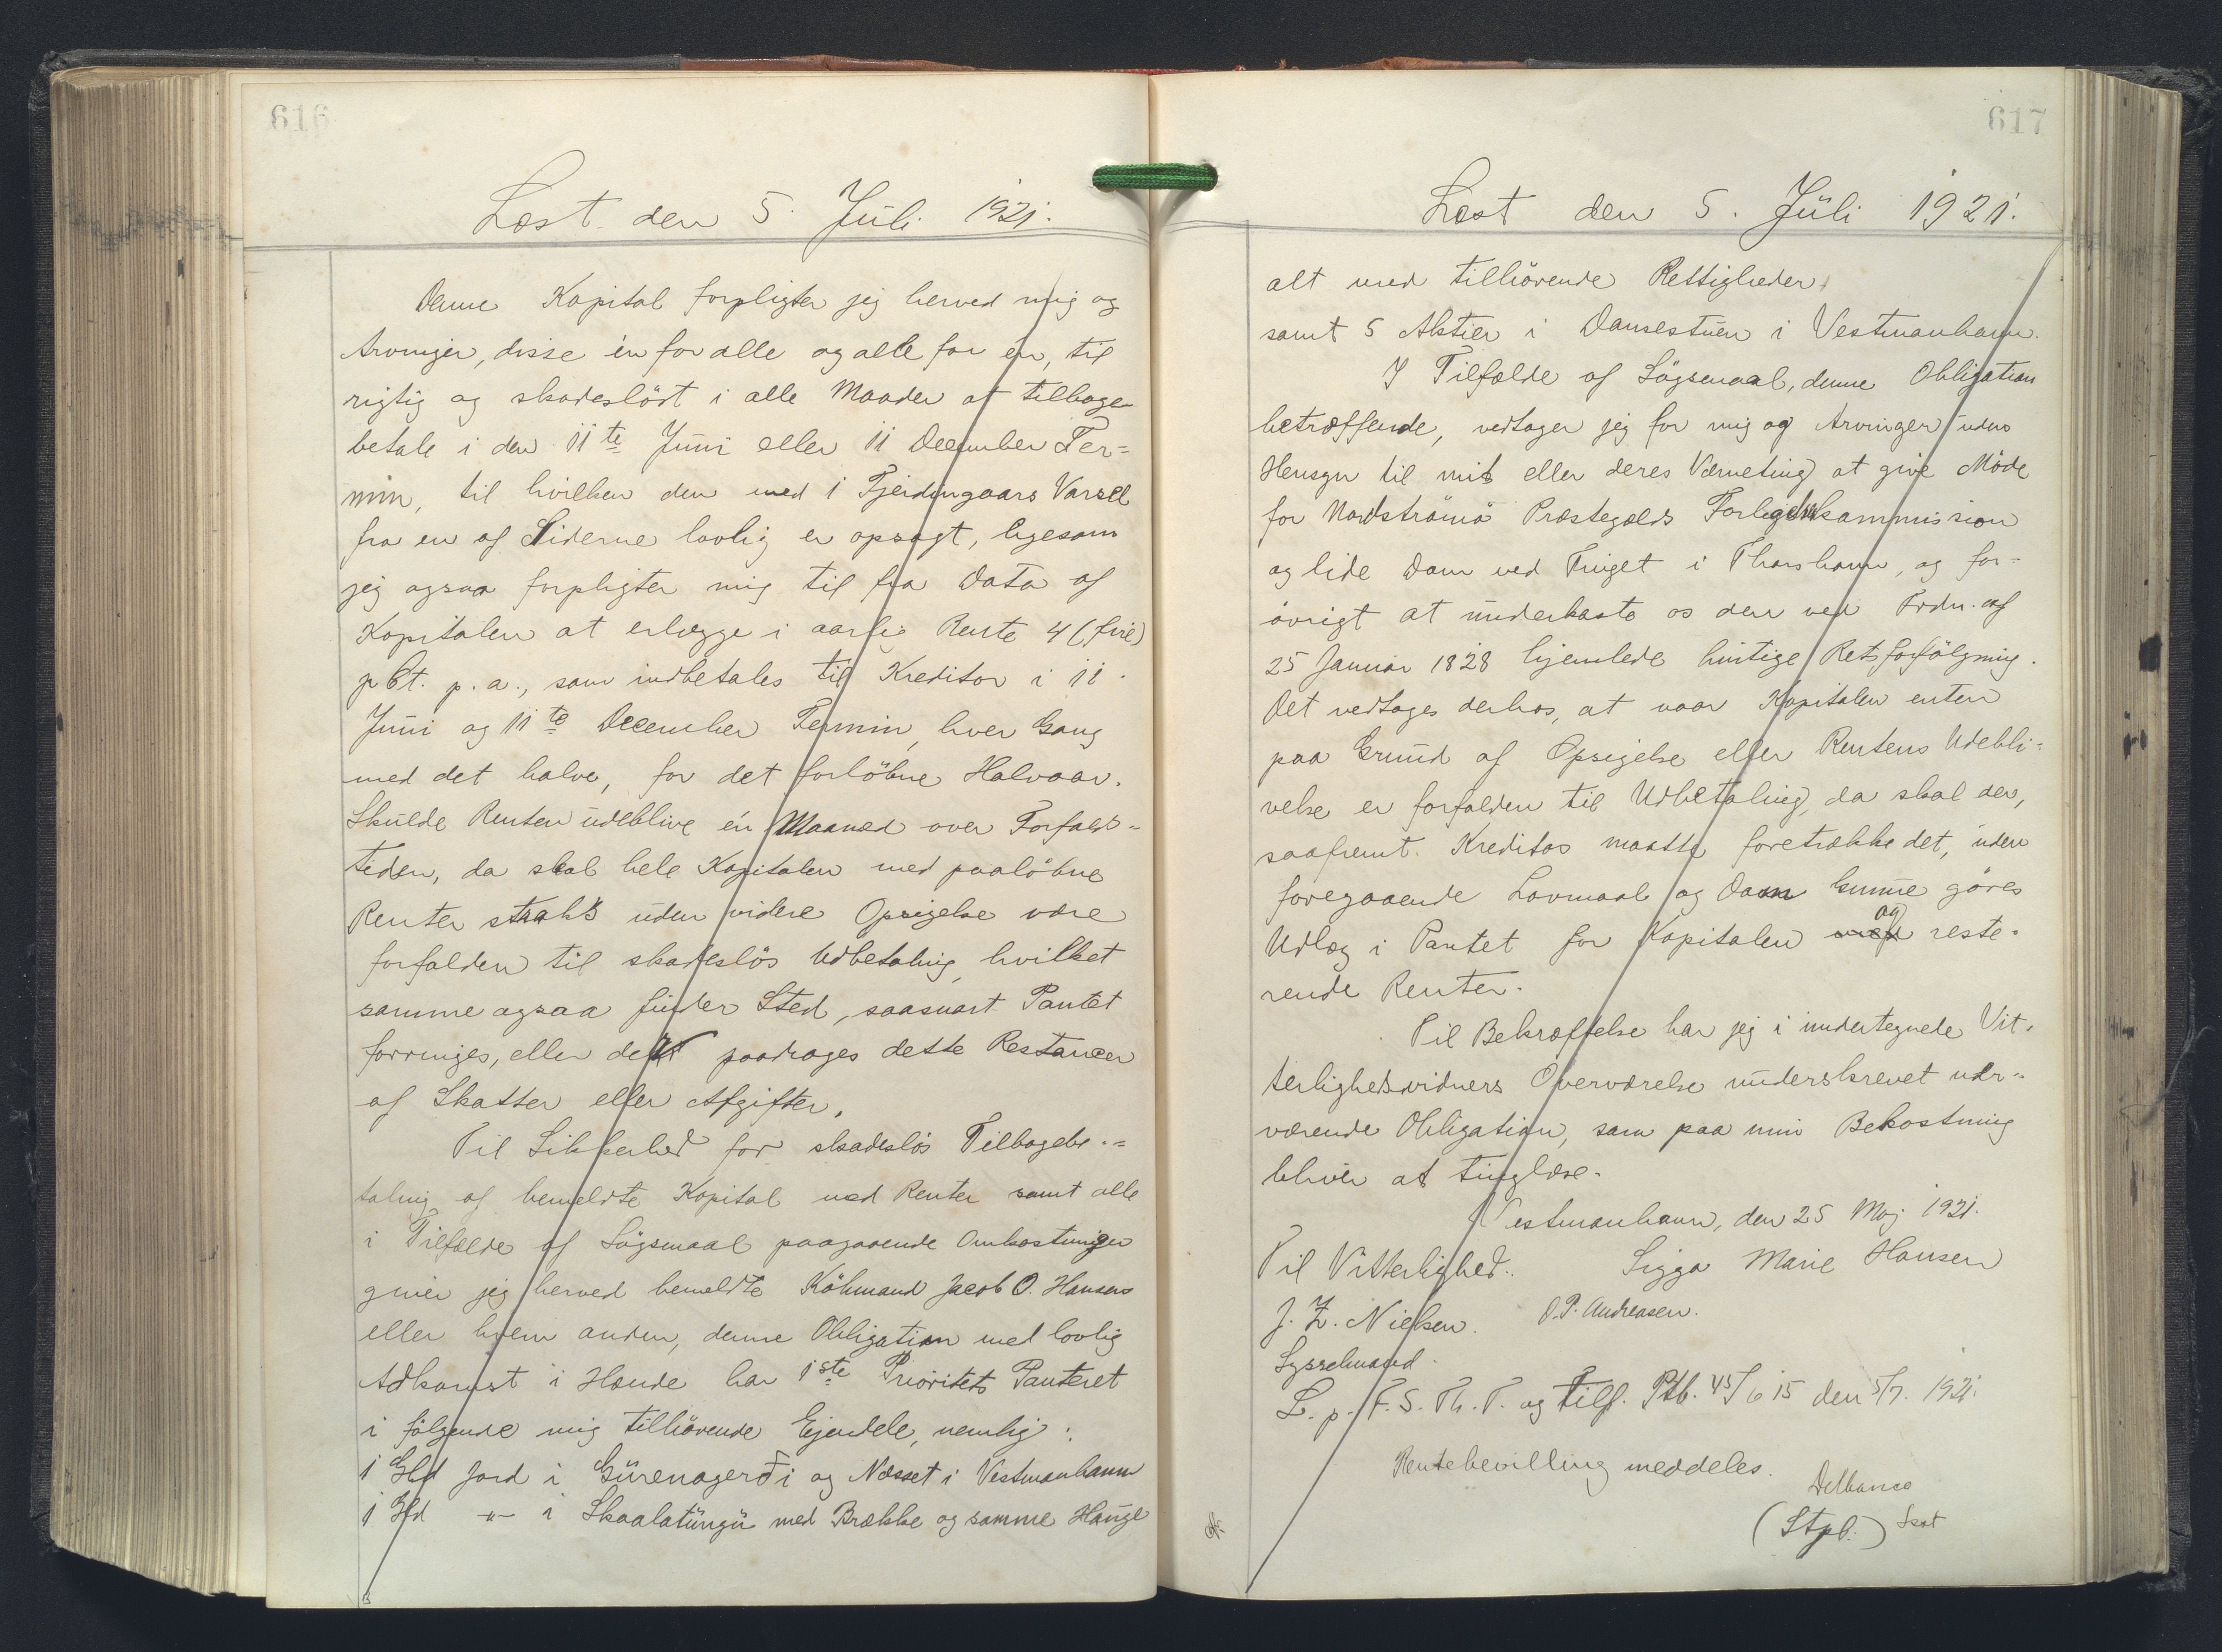 616
Læst den 5. Juli 1921.
Denne Kapital forpligter jeg herved mig og
Arvinger, disse én for alle og alle for én, til
rigtig og skadesløst i alle Maader at tilbage
betale i den 11te Juni eller 11 December Ter=
min, til hvilken den med 1 Fjerdingaars Varsel
fra en af Siderne lovlig er opsagt, ligesom
jeg ogsaa forpligter mig til fra Dato af
Kapitalen at erlægge i aarlig Rente 4 (fire)
pCt. p. a., som indbetales til Kreditor i 11.
Juni og 11te December Termin, hver Gang
med det halve, for det forløbne Halvaar.
Skulde Renten udeblive én Maaned over Forfalds=
tiden, da skal hele Kapitalen med paaløbne
Renter straks uden videre Opsigelse være
forfalden til skadesløs Udbetaling, hvilket
samme ogsaa finder Sted, saasnart Pantet
forringes, eller der paadrages dette Restancer
af Skatter eller Afgifter.
Til Sikkerhed for skadesløs Tilbagebe=
taling af bemeldte Kapital med Renter samt alle
i Tilfælde af Søgsmaal paagaaende Omkostninger
giver jeg herved bemeldte Købmand Jacob O. Hansen
eller hvem anden, denne Obligation med lovlig
Adkomst i Hænde har 1ste Prioritets Panteret
i følgende mig tilhørende Ejendele, nemlig:
1 Gld Jord i Gürenagerði og Næsset i Vestmanhavn
1 Gld -"- i Skaalatüngü med Brække og samme Hauge
617
Læst den 5. Juli 1921.
alt med tilhørende Rettigheder,
samt 5 Aktier i Dansestuen i Vestmanhavn.
I Tilfælde af Søgsmaal, denne Obligation
betræffende, vedtager jeg for mig og Arvinger uden
Hensyn til mit eller deres Værneting at give Møde
for Nordstrømø Præstegælds Forligelseskommission
og lide Dom ved Tinget i Thorshavn, og for=
øvrigt at underkaste os den ved Frdn. af
25 Januar 1828 hjemlede hurtige Retsforfølgning.
Det vedtages derhos, at naar Kapitalen enten
paa Grund af Opsigelse eller Rentens Udebli=
velse er forfalden til Udbetaling, da skal der,
saafremt Kreditor maatte foretrække det, uden
foregaaende Lovmaal og Dom kunne gøres
Udlæg i Pantet for Kapitalen og reste=
rende Renter.
Til Bekræftelse har jeg i undertegnede Vit=
terlighedsvidners Overværelse underskrevet nær=
værende Obligation, som paa min Bekostning
bliver at tinglæse.
Vestmanhavn, den 25 Maj 1921.
Til Vitterlighed. Sigga Marie Hansen
J. Z. Nielsen. O. P. Andreasen.
Sysselmand.
L. p. F. S. Th. T. og Tilf. Ptb. 45/615 den 5/7. 1921.
Rentebevilling meddeles.
Delbanco
(Stpl.) Kst